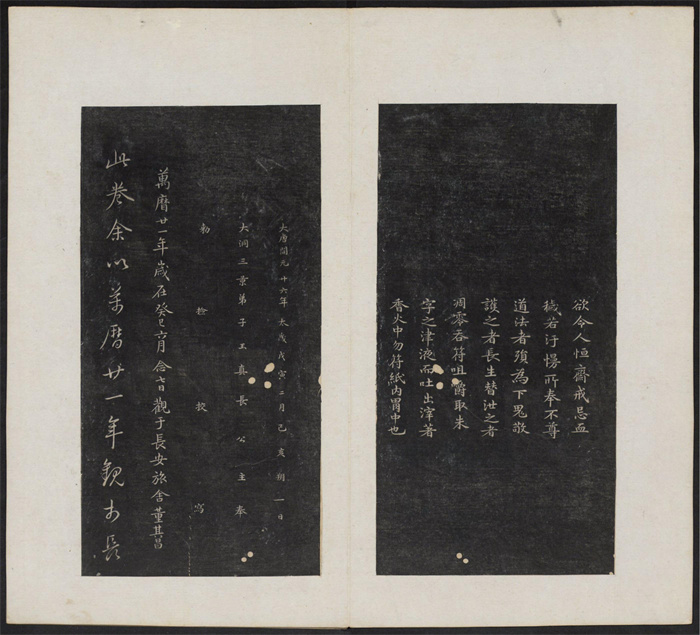 欲令人恒齋戒忌血
穢若汙慢所奉不尊
道法者殞為下鬼敬
護之者長生替泄之者
凋零吞符咀嚼取朱
字之津液而吐出滓著
香火中勿符紙內胃中也
大唐開元廿六年太歲戊寅二月己亥朔一日
大洞三景弟子玉真長公主奉
勑 檢 校 寫
萬曆廿一年歲在癸巳六月念七日觀于長安旅舍董其昌
此卷余以萬曆廿一年觀於長